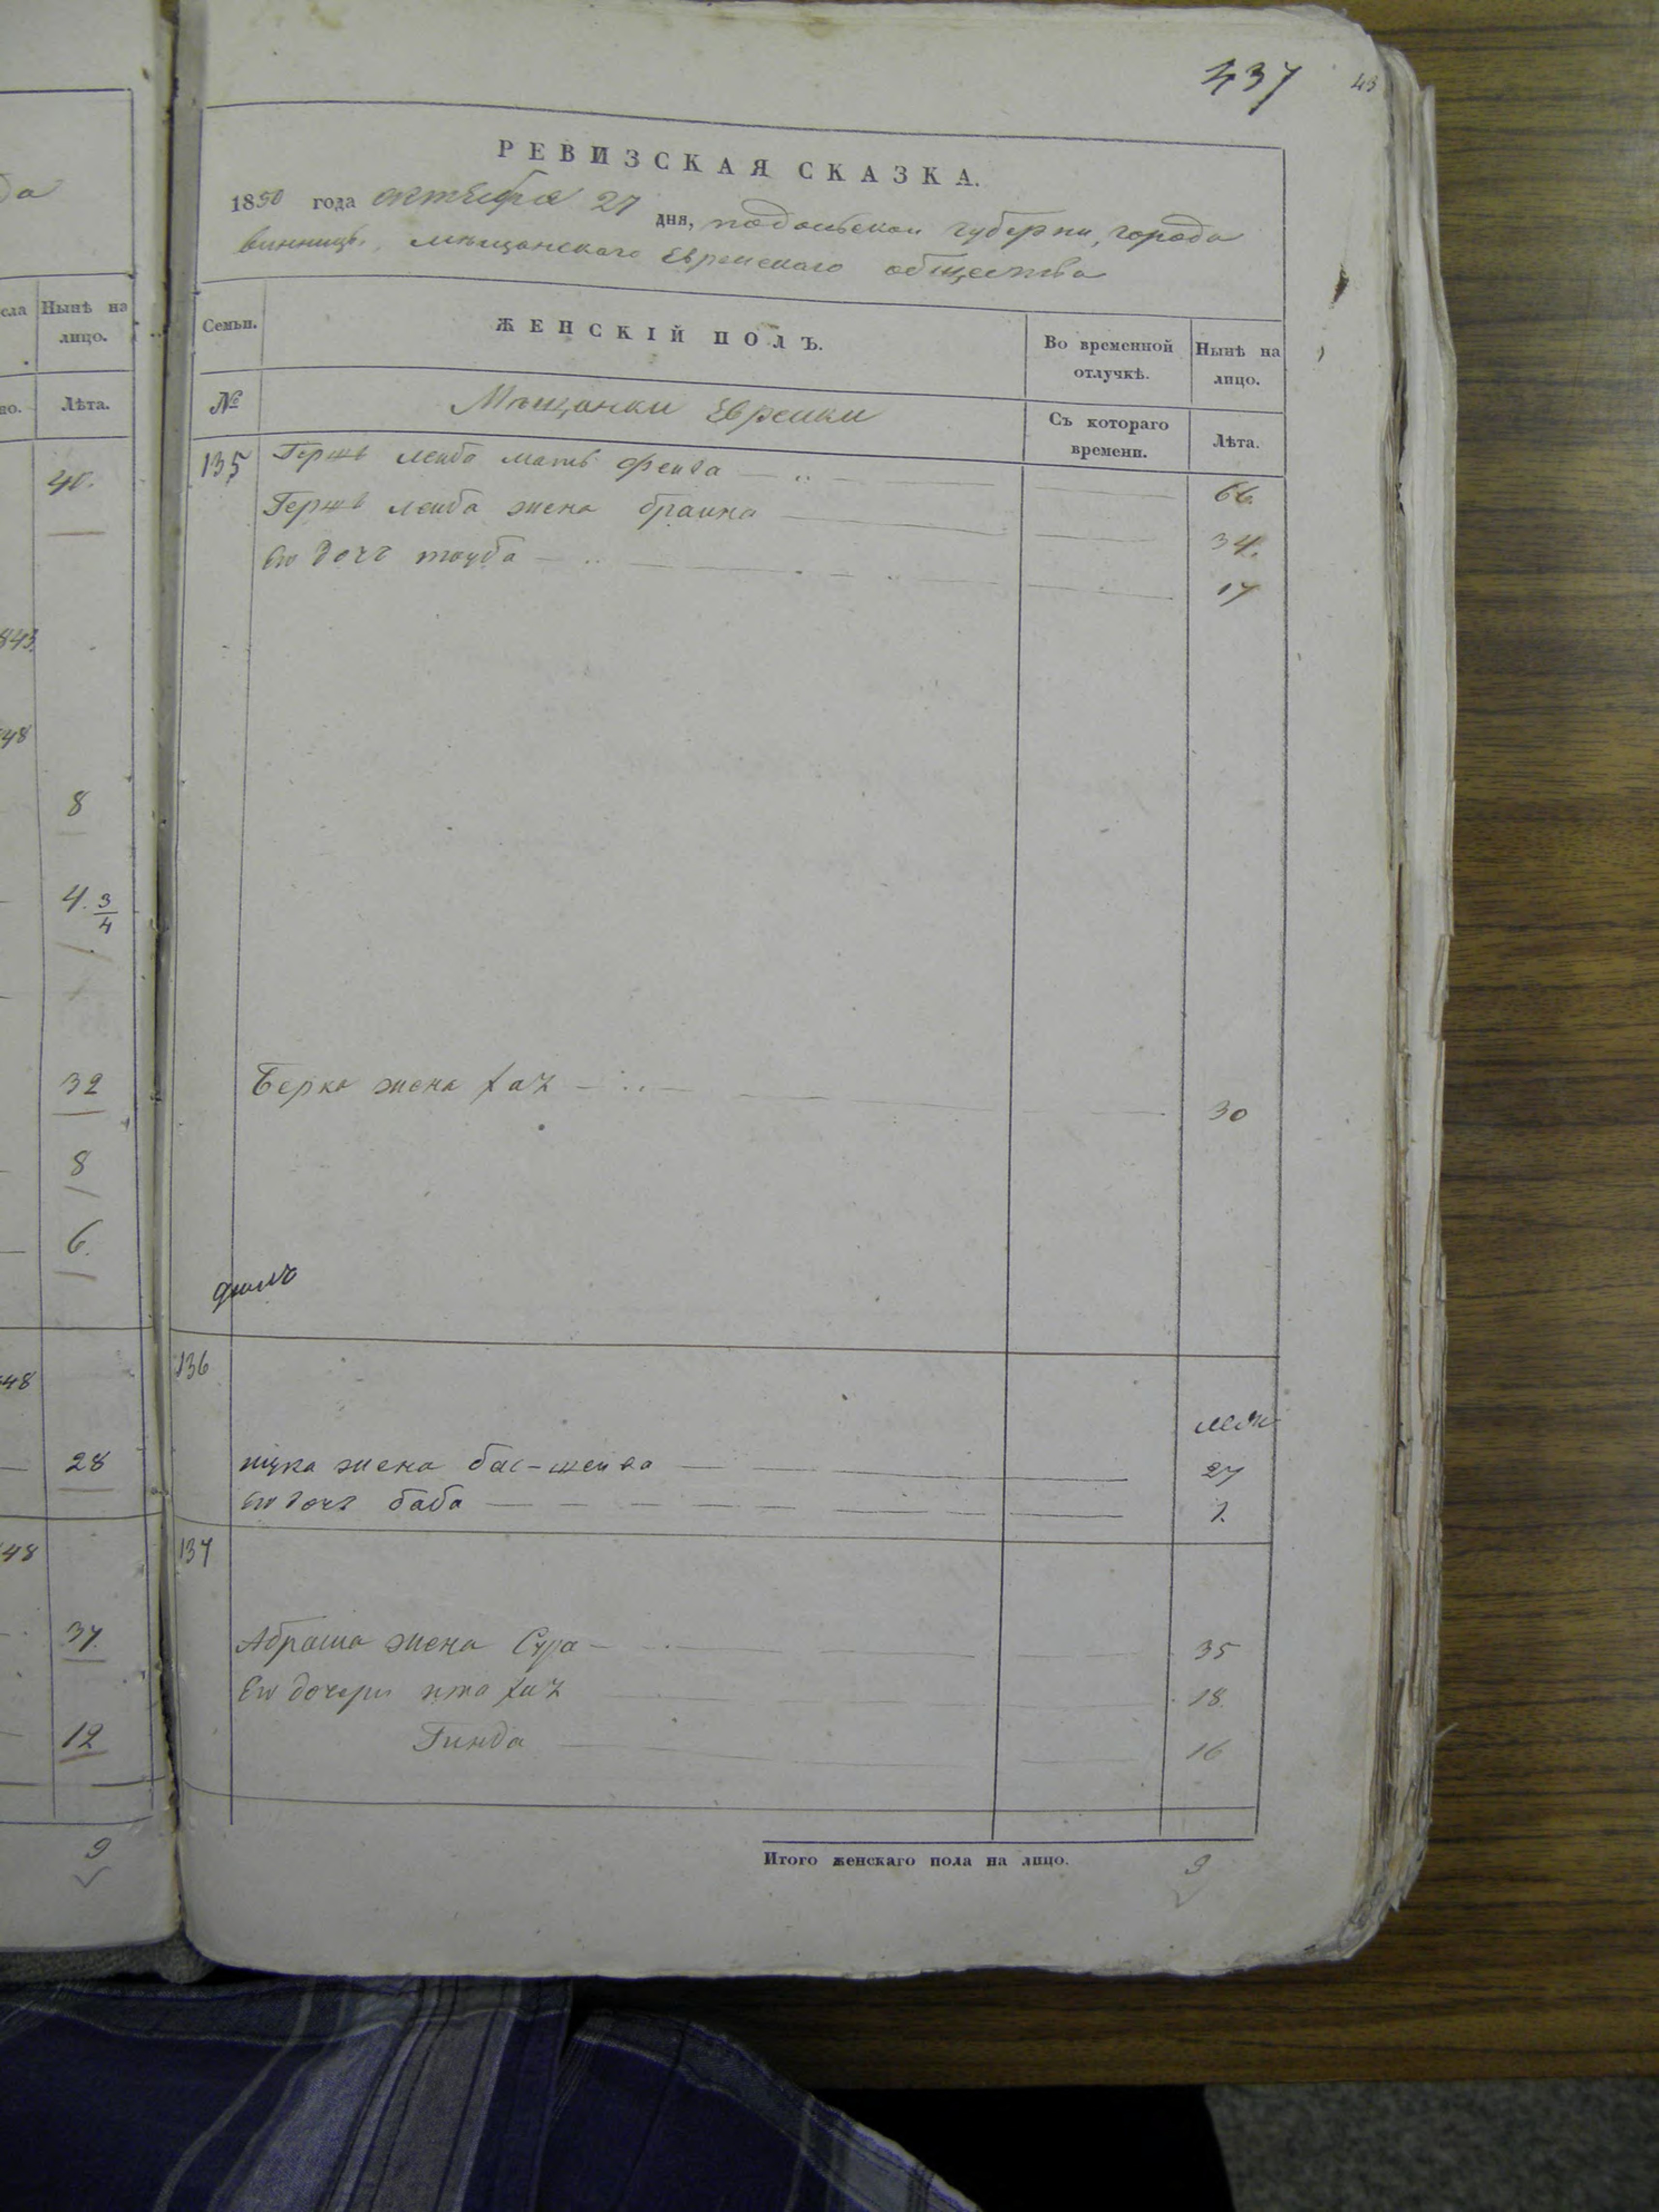 437 43
РЕВИЗСКАЯ СКАЗКА.
1850 года октября 27 дня, подольской губерни, города
винницы, мещанскаго Еврейскаго общества
сла Нынѣ на лицо.
Лѣта.
40.
843.
48
8
4. 3/4
32
8
6.
48
28
48
37.
12
9
Семьи. ЖЕНСКІЙ ПОЛЪ. Во временной отлучкѣ. Нынѣ на лицо.
№ Мѣщанки Еврейки Съ котораго времени. Лѣта.
135 Гершъ лейба мать фейга 66.
Гершъ лейба жена браина 34.
Его дочь тауба 17
Берка жена хая 30
136
ицка жена бас-шейва 27
Его дочь баба
137
Абрама жена Сура 35
Его дочери ита хая 18
Гинда 16
Итого женскаго пола на лицо. 9